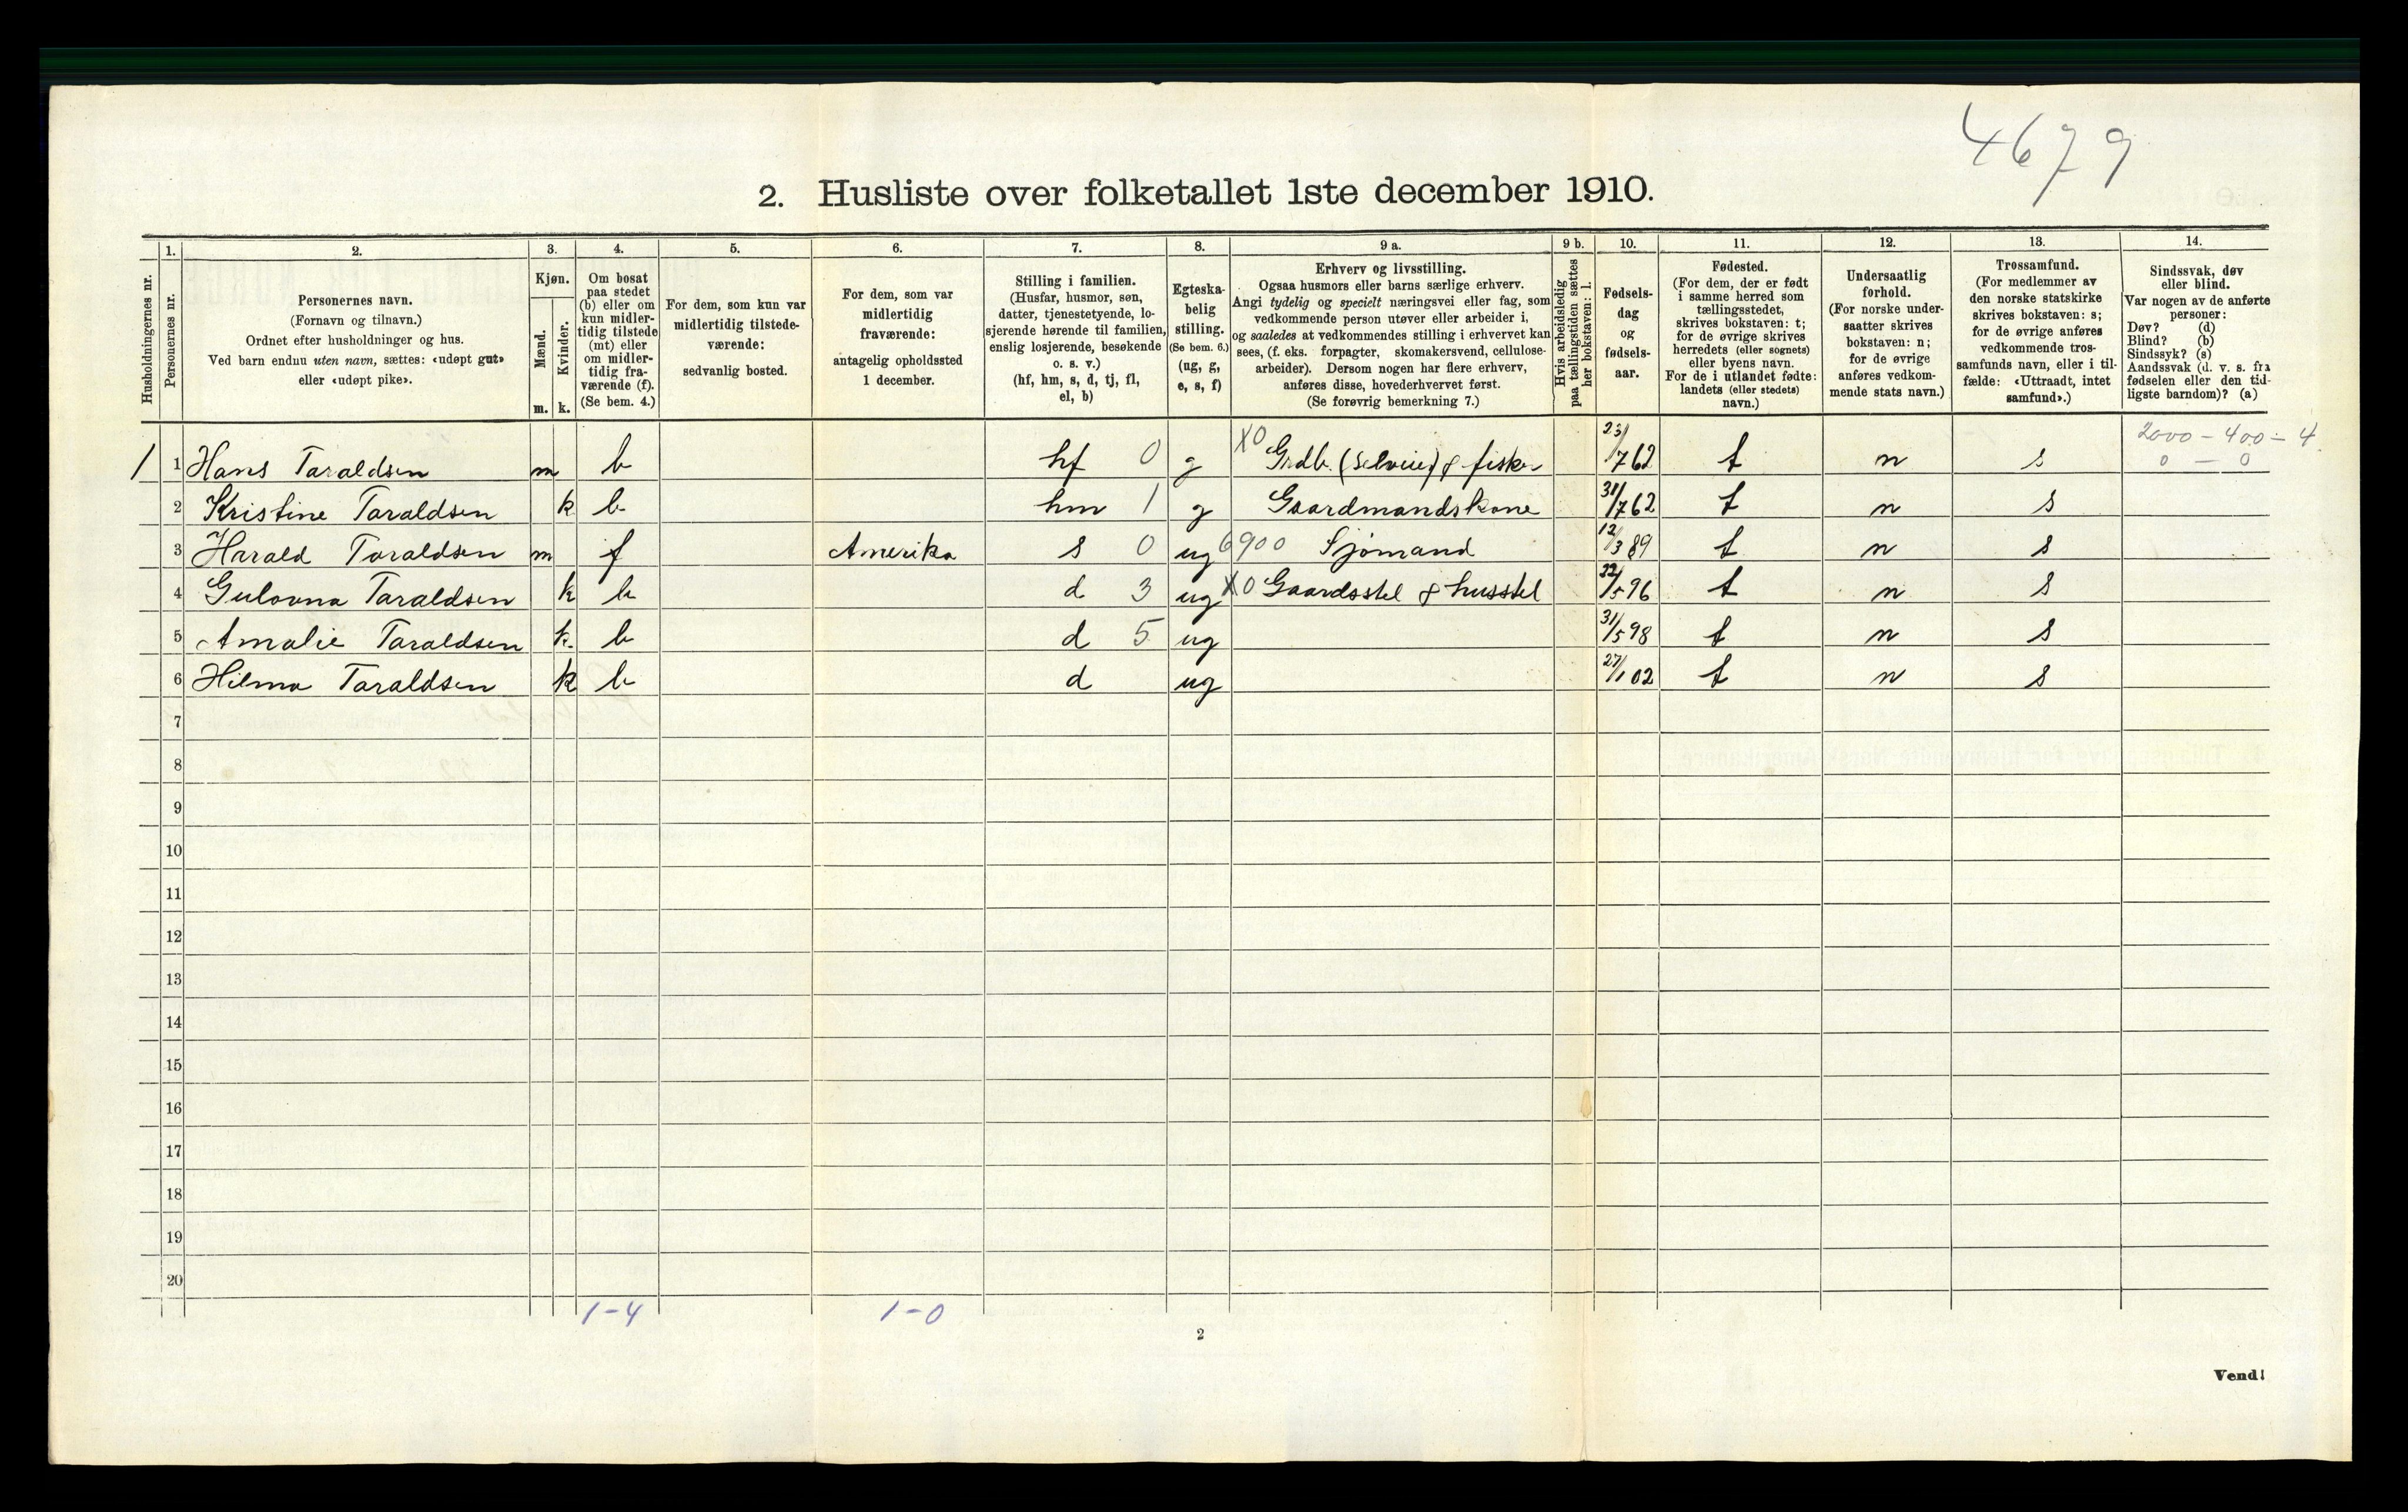 4679
2. Husliste over folketallet 1ste december 1910.
Husholdningernes nr.
1.
Personernes nr.
2.
Personernes navn.
(Fornavn og tilnavn.)
Ordnet efter husholdninger og hus.
Ved barn endnu uten navn, sættes: «udøpt gut»
eller «udøpt pike».
3.
Kjøn.
Mænd.
Kvinder.
m. k.
4.
Om bosat
paa stedet
(b) eller om
kun midler-
tidig tilstede
(mt) eller
om midler-
tidig fra-
værende (f).
(Se bem. 4.)
5.
For dem, som kun var
midlertidig tilstede-
værende:
sedvanlig bosted.
6.
For dem, som var
midlertidig
fraværende:
antagelig opholdssted
1 december.
7.
Stilling i familien.
(Husfar, husmor, søn,
datter, tjenestetyende, lo-
sjerende hørende til familien,
enslig losjerende, besøkende
o. s. v.)
(hf, hm, s, d, tj, fl,
el, b)
8.
Egteska-
belig
stilling.
(Se bem. 6.)
(ug, g,
e, s, f)
9 a.
Erhverv og livsstilling.
Ogsaa husmors eller barns særlige erhverv.
Angi tydelig og specielt næringsvei eller fag, som
vedkommende person utøver eller arbeider i,
og saaledes at vedkommendes stilling i erhvervet kan
sees, (f. eks. forpagter, skomakersvend, cellulose-
arbeider). Dersom nogen har flere erhverv,
anføres disse, hovederhvervet først.
(Se forøvrig bemerkning 7.)
9 b.
Hvis arbeidsledig
paa tællingstiden sættes
her bokstaven: l.
10.
Fødsels-
dag
og
fødsels-
aar.
11.
Fødested.
(For dem, der er født
i samme herred som
tællingsstedet,
skrives bokstaven: t;
for de øvrige skrives
herredets (eller sognets)
eller byens navn.
For de i utlandet fødte:
landets (eller stedets)
navn.)
12.
Undersaatlig
forhold.
(For norske under-
saatter skrives
bokstaven: n;
for de øvrige
anføres vedkom-
mende stats navn.)
13.
Trossamfund.
(For medlemmer av
den norske statskirke
skrives bokstaven: s;
for de øvrige anføres
vedkommende tros-
samfunds navn, eller i til-
fælde: «Uttraadt, intet
samfund».)
14.
Sindssvak, døv
eller blind.
Var nogen av de anførte
personer:
Døv? (d)
Blind? (b)
Sindssyk? (s)
Aandssvak (d. v. s. fra
fødselen eller den tid-
ligste barndom)? (a)
2000 - 400 - 4
1 1 Hans Taraldsen m b hf 0 g X0 Grdb. (Selveier) & fisker 23/7 62 t n s 0 - 0
2 Kristine Taraldsen k b hm 1 g Gaardmandskone 31/7 62 t n s
3 Harald Taraldsen m f Amerika s 0 ug 6900 Sjømand 12/3 89 t n s
4 Gulovna Taraldsen k b d 3 ug X0 Gaardsstel & husstel 22/5 96 t n s
5 Amalie Taraldsen k. b d 5 ug 31/5 98 t n s
6 Hilma Taraldsen k b d ug 27/1 02 t n s
7
8
9
10
11
12
13
14
15
16
17
18
19
20
1-4 1-0
2
Vend!